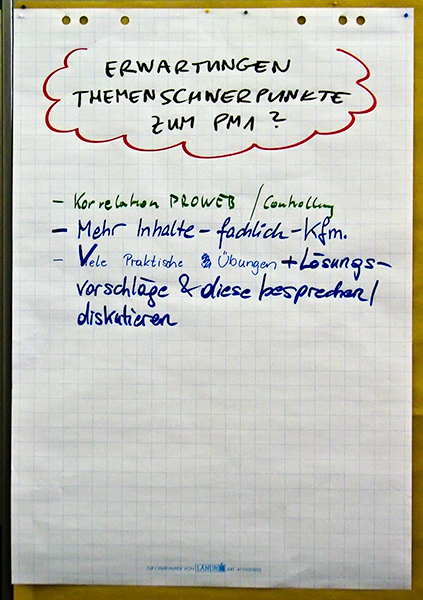 ERWARTUNGEN
THEMENSCHWERPUNKTE
ZUM PM1?
- Korrelation PROWEB / Controlling
- Mehr Inhalte - fachlich - Kfm.
- Viele Praktische Übungen + Lösungs-
vorschläge & diese besprechen/
diskutieren
FLIPCHARTPAPIER VON LANDRÉ